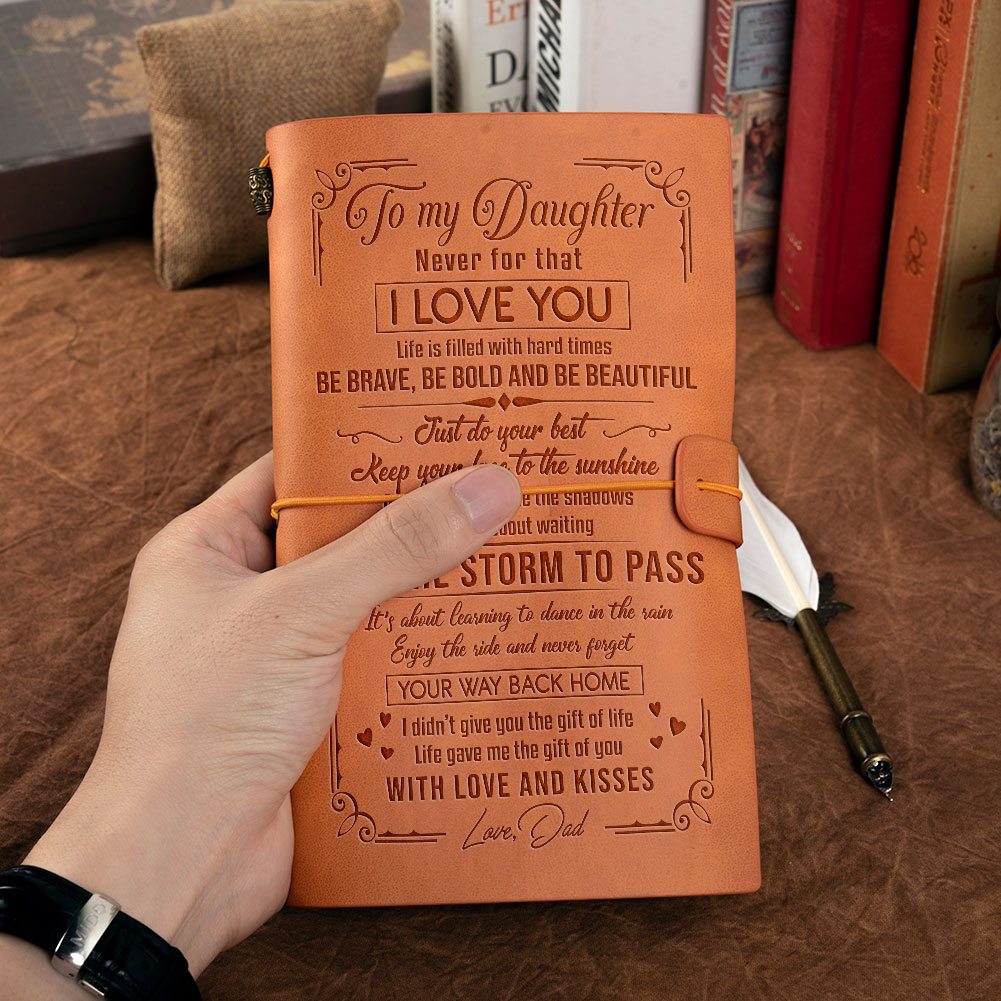 Er
DA
EVO
MICHAE
To my Daughter
Never for that
I LOVE YOU
Life is filled with hard times
BE BRAVE, BE BOLD AND BE BEAUTIFUL
Just do your best
Keep your to the sunshine
the shadows
about waiting
STORM TO PASS
It's about learning to dance in the rain
Enjoy the ride and never forget
YOUR WAY BACK HOME
I didn't give you the gift of life
Life gave me the gift of you
WITH LOVE AND KISSES
Love, Dad